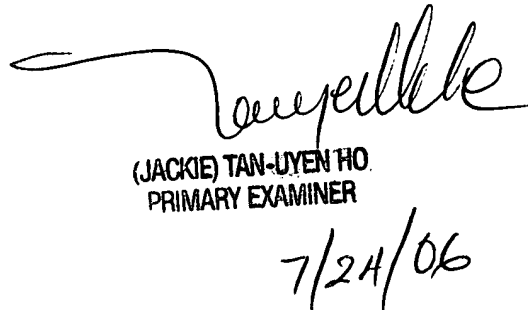 (JACKIE) TAN-UYEN HO
PRIMARY EXAMINER
7/24/06